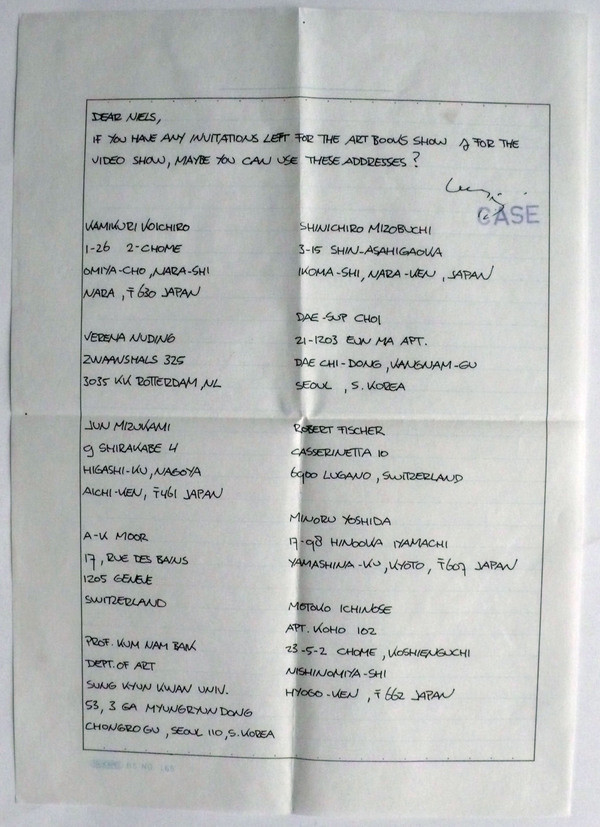 DEAR NIELS,
IF YOU HAVE ANY INVITATIONS LEFT FOR THE ART BOOKS SHOW & FOR THE
VIDEO SHOW, MAYBE YOU CAN USE THESE ADDRESSES?
CASE
KAMIKURI KOICHIRO
1-26 2-CHOME
OMIYA-CHO, NARA-SHI
NARA, 〒630 JAPAN
VERENA NUDING
ZWAANSHALS 325
3035 KK ROTTERDAM, NL
JUN MIZUKAMI
9 SHIRAKABE 4
HIGASHI-KU, NAGOYA
AICHI-KEN, 〒461 JAPAN
A-K MOOR
17, RUE DES BAINS
1205 GENEVE
SWITZERLAND
PROF. KUM NAM BAIK
DEPT. OF ART
SUNG KYUN KWAN UNIV.
53, 3 GA MYUNGRYUN DONG
CHONGRO GU, SEOUL 110, S. KOREA
SHINICHIRO MIZOBUCHI
3-15 SHIN-ASAHIGAOKA
IKOMA-SHI, NARA-KEN, JAPAN
DAE-SUP CHOI
21-1203 EUN MA APT.
DAE CHI-DONG, KANGNAM-GU
SEOUL, S. KOREA
ROBERT FISCHER
CASSERINETTA 10
6900 LUGANO, SWITZERLAND
MINORU YOSHIDA
17-98 HINOOKA IYAMACHI
YAMASHINA-KU, KYOTO, 〒607 JAPAN
MOTOKO ICHINOSE
APT. KOHO 102
23-5-2 CHOME, KOSHIENGUCHI
NISHINOMIYA-SHI
HYOGO-KEN, 〒662 JAPAN